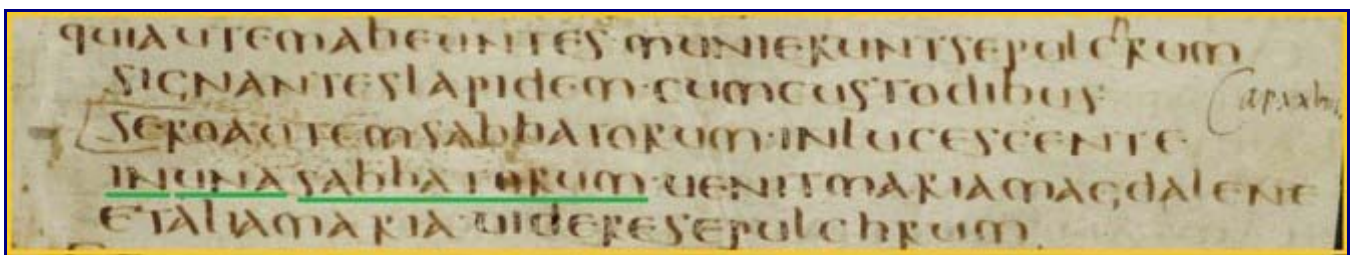 QUIAUTEMABEUNTES MUNIERUNTSEPULChRUM
SIGNANTESLAPIDEM·CUMCUSTODIBUS
SEROAUTEMSABBATORUM·INLUCESCENTE
INUNA SABBATORUM·UENITMARIAMAGDALENE
ETALIAMARIA·UIDERESEPULCHRUM